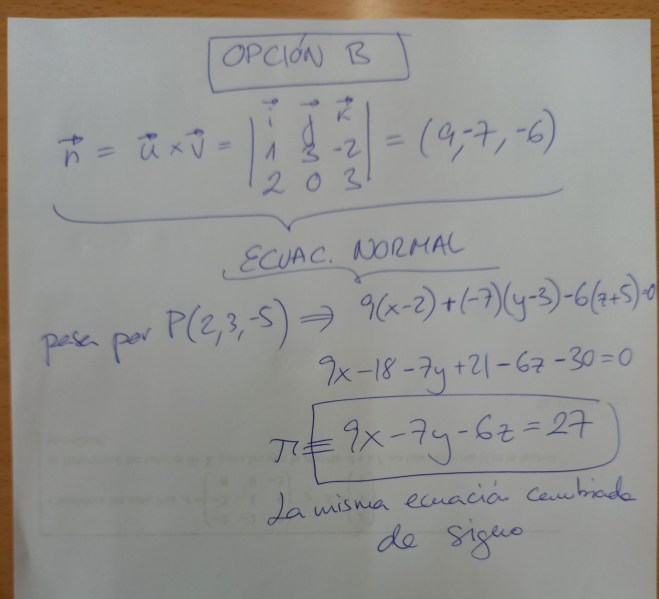 OPCIÓN B
n⃗ = u⃗ × v⃗ = | i⃗ j⃗ k⃗ | = (9, -7, -6)
1 3 -2
2 0 3
ECUAC. NORMAL
pasa por P(2,3,-5) ⇒ 9(x-2)+(-7)(y-3)-6(z+5)=0
9x-18-7y+21-6z-30=0
π≡ 9x-7y-6z=27
La misma ecuación cambiada
de signo